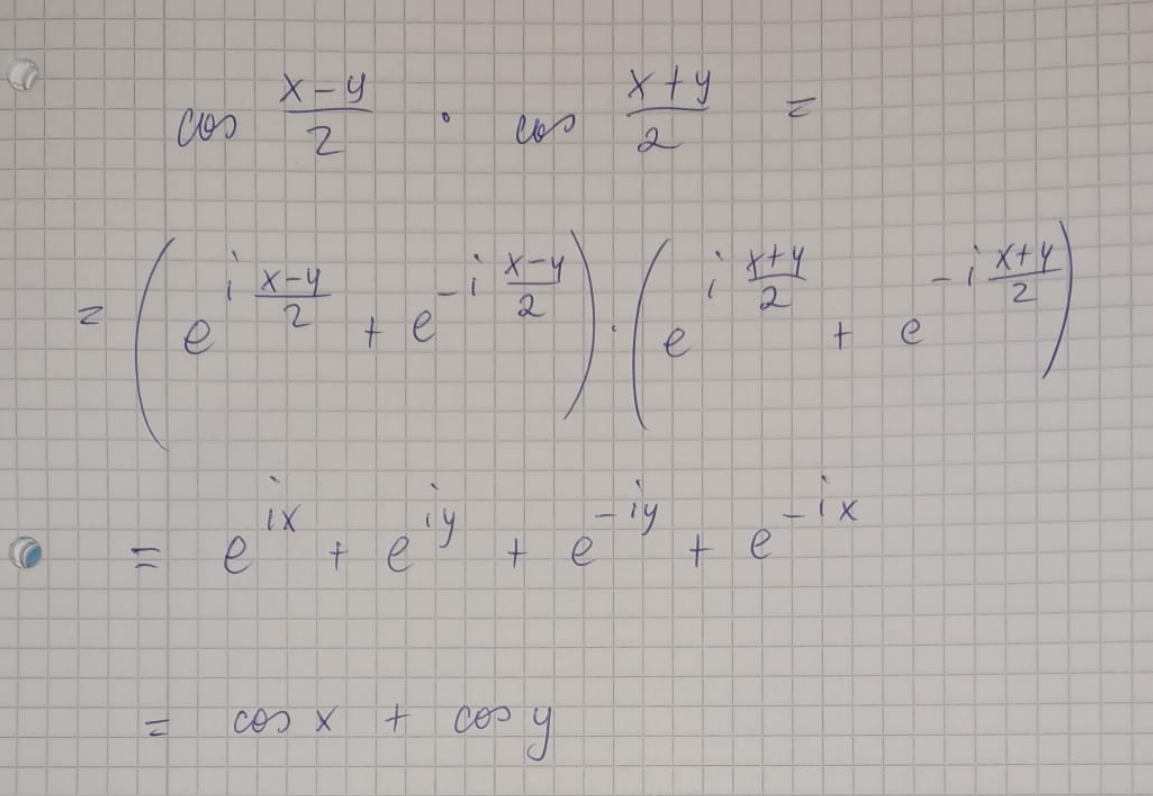 cos (x-y)/2 · cos (x+y)/2 =
= (e^{i (x-y)/2} + e^{-i (x-y)/2}) · (e^{i (x+y)/2} + e^{-i (x+y)/2})
= e^{ix} + e^{iy} + e^{-iy} + e^{-ix}
= cos x + cos y